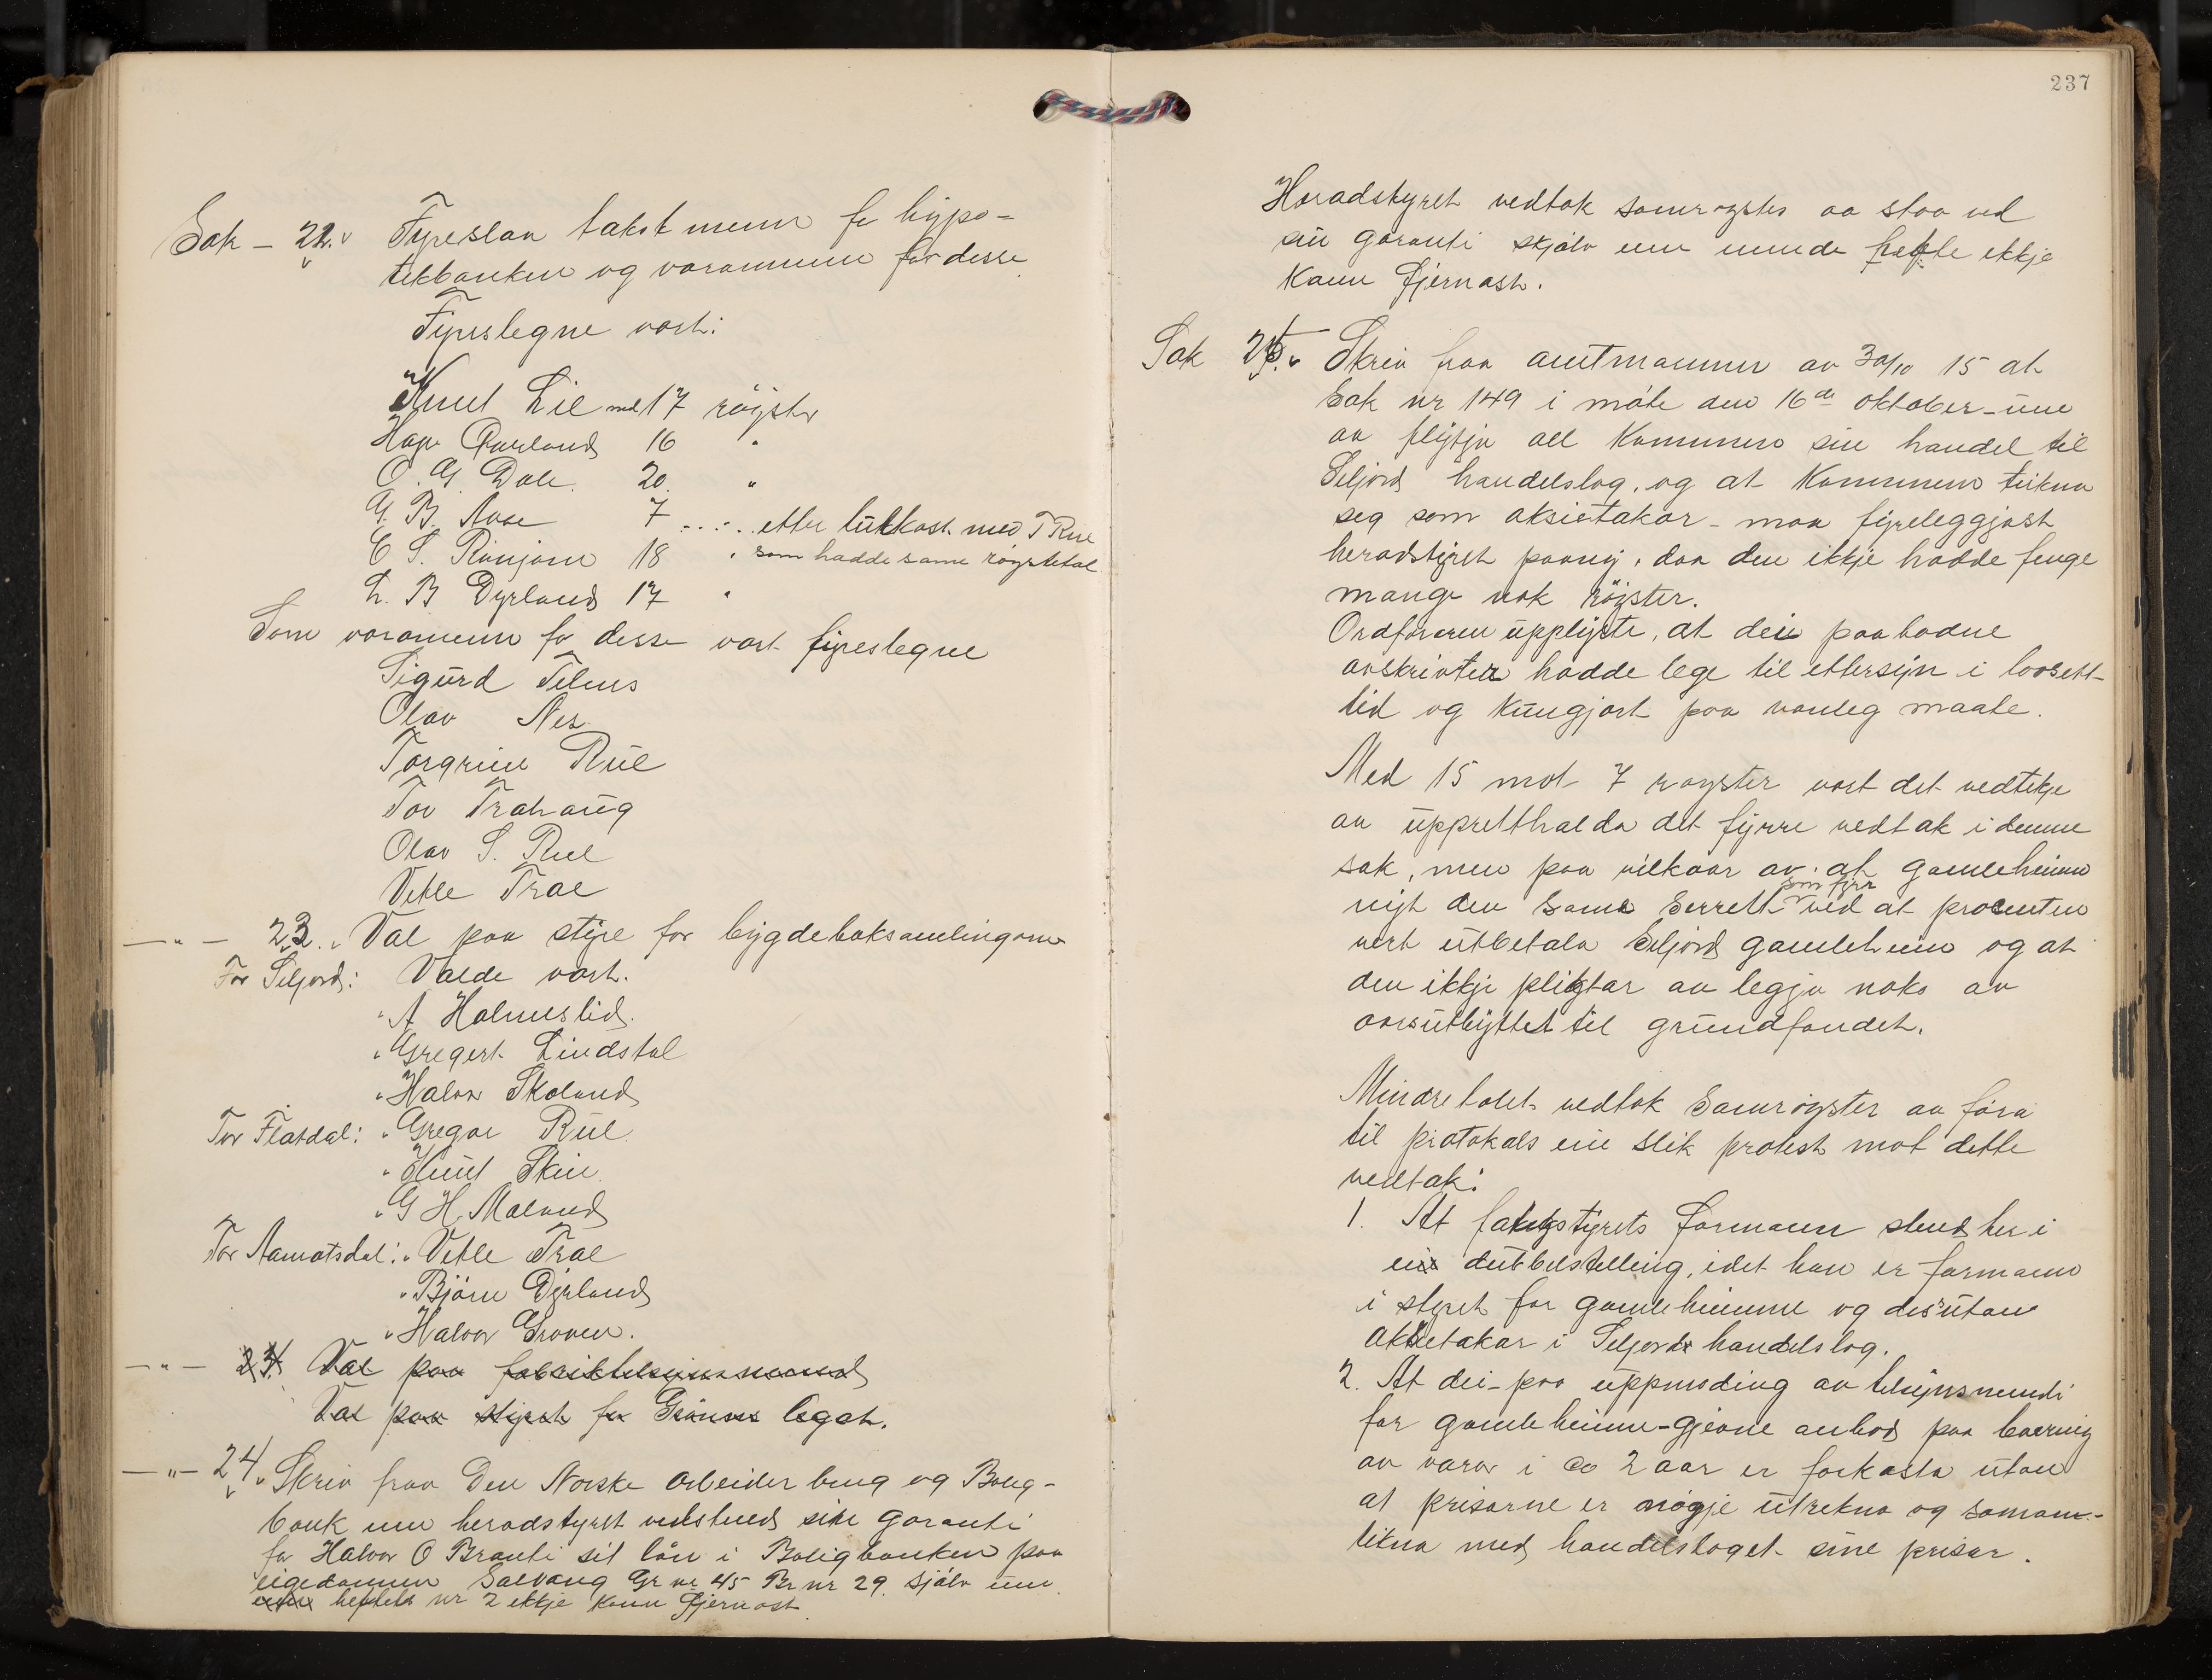 Sak - 22. Fyreslaa takstmenn for hypo-
tekbanken og varamenn for desse
Fyreslegne vart:
Knut Lie med 17 røyster
16 "
O. G. Dale 20 "
G. B. Aase 7 . . . . etter lutkast med T Rue
18 " som hadde same røystetal
L. B Dyrland 17 "
Som varamenn for desse vart fyreslegne
Sigurd
Olav Nes
Torgrim Rue
Tov
Olav S. Rue
Vetle Trae
— " — 23. Val paa styre for bygdeboksamlingane
For Seljord: Valde vart.
" A Holmslid.
" Gregert Lindstal
" Halvor Skoland
For Flatdal: " Gregar Rue.
" Knut Skeie
" G H. Malaud
For Aamotsdal: " Vetle Trae
" Björn Dyrland
" Halvor Groven.
— " — 24. Val paa fabriktilsynsmand
Val paa styret for legat.
— " — 24. Skriv fraa Den Norske Arbeiderbrug og Bolig-
bank um heradstyret vedstend sin garanti
for Halvor O Brauti sit lån i Boligbanken paa
eigedomen Solvang Gr nr 45 Br nr 29. sjölv um
heftels nr 2 ikkje kann fjernast
237
Heradstyret vedtok samrøystes aa staa ved
sin garanti skjølv um hefte ikkje
kann fjernast.
Sak 25. Skriv fraa amtmannen av 30/10 15 at
Sak nr 149 i møte den 16de oktober - um
aa flytja all Kommunens sin handel til
Seljord handelslag, og at Kommunen teikna
seg som aksietakar - maa fyreleggjast
heradstyret paany, daa den ikkje hadde fenge
mange nok röyster.
Ordföraren upplyste, at dei paabodne
avskrivter hadde lege til ettersyn i lovsett
tid og kungjort paa vanleg maate.
Med 15 mot 7 røyster vart det vedteke
aa uppretthalda det fyrre vedtak i denne
sak, men paa vilkaar av: at gamleheimen
nyt den same serrett som fyrr ved at procenten
vert utbetala Seljord gamleheim og at
den ikkje pligtar aa legja noko av
aarsutbyttet til grundfondet.
Mindretalet vedtok samrøystes aa føra
til protokols ein slik protest mot dette
vedtak:
1. At fatigstyrets formann stend her i
ein dubbelstelling, idet han er formann
i styret for gamleheimen og desutan
aksietakar i Seljord handelslag.
2. At dei - paa uppmoding av tilsynsnemndi
for gamleheimen - gjevne anbod paa levering
av varor i ca 2 aar er forkasta utan
at prisarne er nøgje utrekna og saman-
likna med handelslaget sine prisar.